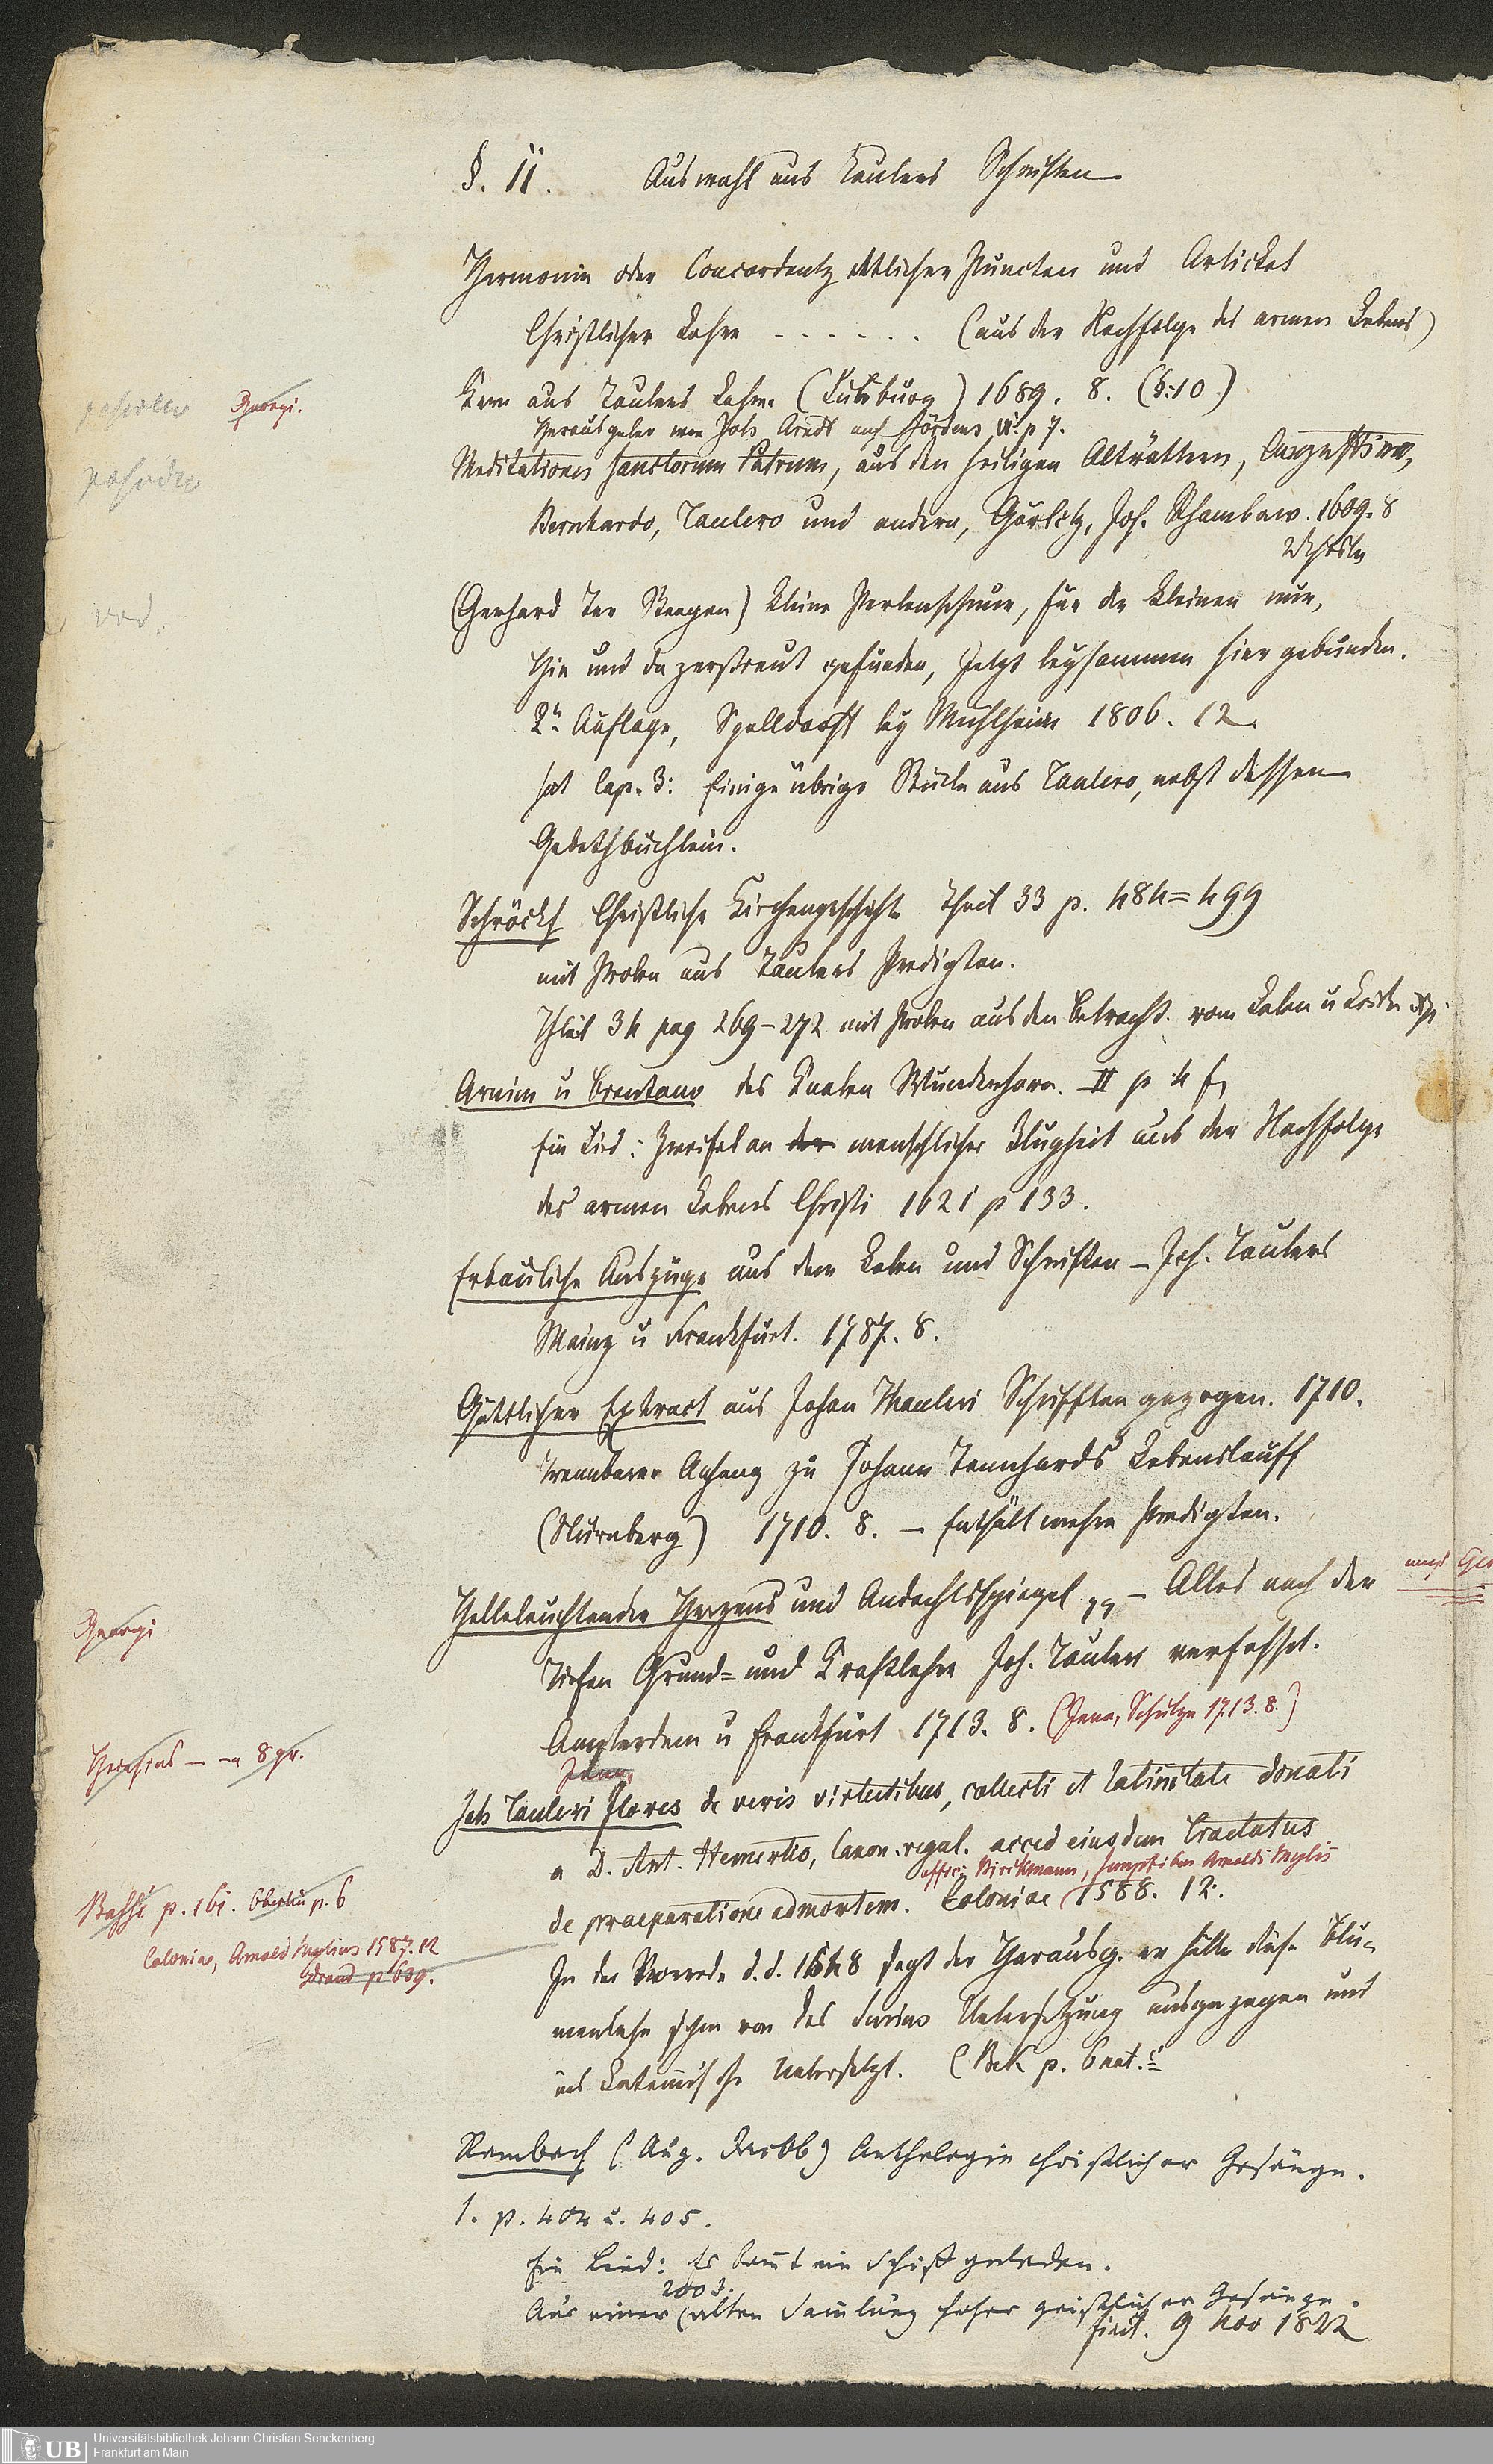 §. 11. Auswahl aus Taulers Schriften
Harmonie oder Concordantz etlicher Puncten und Artickel
Christlicher Lehre - - - - - . (aus der Nachfolge des armen Lebens)
Georgi.
Kern aus Taulers Lehre (Lüneburg) 1689. 8. (§:10.)
Herausgeber war Joh Arndt nach Jördens VI. p 7.
Meditationes sanctorum Patrum, aus den heiligen Altvättern, Augustino,
Bernhardo, Taulero und andern, Görlitz, Joh. Rhambaw. 1609. 8
2 Theile
(Gerhard Ter Steegen) kleine Perlenschnur, für die Kleinen nur,
Hie und da zerstreut gefunden, Jetzt beysammen hier gebunden.
2te Auflage, Spelldorff bey Mühlheim 1806. 12.
hat Cap. 3: Einige übrige Stücke aus Taulero, nebst dessen
Gebethbüchlein.
Schröckh Christliche Kirchengeschichte Theil 33 p. 484=499
mit Proben aus Taulers Predigten.
Theil 34 pag 269-272 mit Proben aus den Betracht. vom Leben u Leiden
Arnim u Brentano des Knaben Wunderhorn. II p 4 f,
Ein Lied: Zweifel an der menschlicher Klugheit aus der Nachfolge
des armen Lebens Christi 1621 p 133.
Erbauliche Auszüge aus dem Leben und Schriften - Joh. Taulers
Mainz u Frankfurt. 1787. 8.
Göttlicher Extract aus Johan Thauleri Schrifften gezogen. 1710.
Trennbarer Anhang zu Johann Tennhards Lebenslauff
(Nürnberg) 1710. 8. - Enthält mehre Predigten.
Helleleuchtender Herzens und Andachtsspiegel - Alles nach der
Georgi
Tiefen Grund= und Kraftlehre Joh. Taulers verfasset.
Amsterdam u Frankfurt 1713. 8. (Jena, Schultze 1713. 8.)
Heinsius - 8 gr.
Joh Tauleri Flores de veris virtutibus, collecti et Latinitate donati
a D. Ant. Hemertio, Canon. regul. acced eiusdem Tractatus
offic: Birckmann, sumptibus Arnoldi Mylii
de praeparatione ad mortem. Coloniae 1588. 12.
p. 161. Oberlin p. 6
Coloniae, Arnold Mylius 1587. 12
Draud p 609.
In der Vorrede d. d. 1548 sagt der Herausg. er hätte diese Blu-
menlese schon vor des Surius Uebersetzung ausgezogen und
ins Lateinische übersetzt. (Bek p. 6 not. c
Rambach (Aug. Jacob) Anthologie christlicher Gesänge.
1. p. 404 u. 405.
Ein Lied: Es kommt ein Schiff geladen.
Aus einer alten Samlung hoher geistlicher Gesänge.
finit. 9 Nov 1822
UB Universitätsbibliothek Johann Christian Senckenberg
Frankfurt am Main